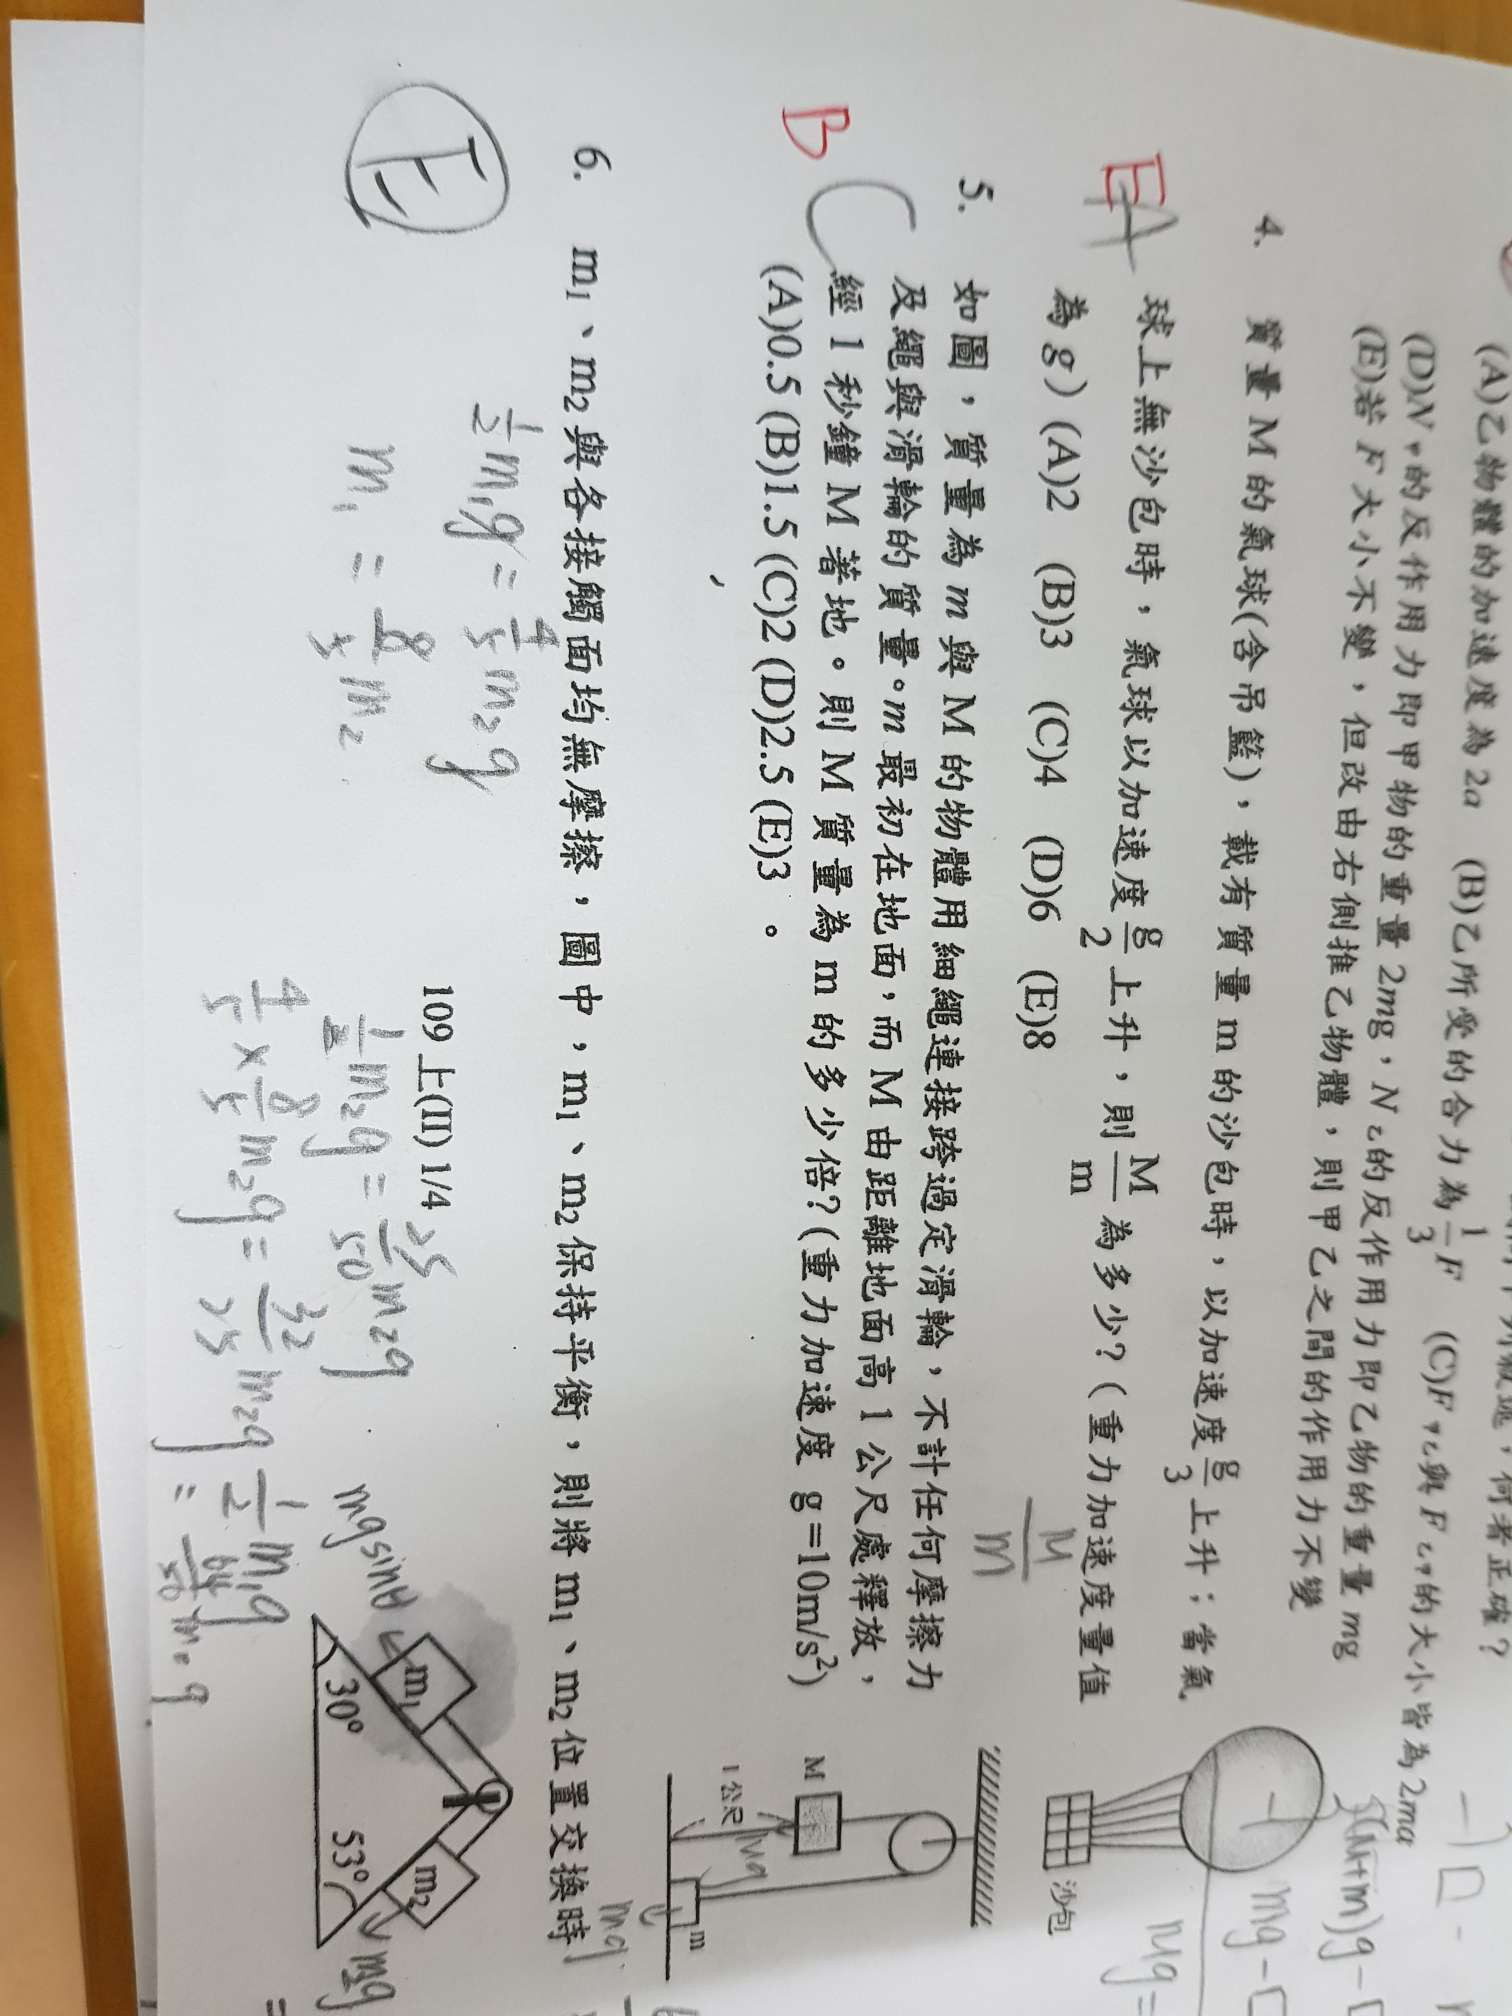 (A)乙物體的加速度為 2a (B)乙所受的合力為 1/3 F (C)F甲乙與 F乙甲的大小皆為 2ma
(D)N甲的反作用力即甲物的重量 2mg,N乙的反作用力即乙物的重量 mg
(E)若 F 大小不變,但改由右側推乙物體,則甲乙之間的作用力不變
4. 質量 M 的氣球(含吊籃),載有質量 m 的沙包時,以加速度 g/3 上升;當氣
球上無沙包時,氣球以加速度 g/2 上升,則 M/m 為多少?(重力加速度量值
為 g) (A)2 (B)3 (C)4 (D)6 (E)8
E A
沙包
M/m
5. 如圖,質量為 m 與 M 的物體用細繩連接跨過定滑輪,不計任何摩擦力
及繩與滑輪的質量。m 最初在地面,而 M 由距離地面高 1 公尺處釋放,
經 1 秒鐘 M 著地。則 M 質量為 m 的多少倍?(重力加速度 g=10m/s²)
(A)0.5 (B)1.5 (C)2 (D)2.5 (E)3 。
B C
M
1 公尺
Mg
m
mg
6. m₁、m₂與各接觸面均無摩擦,圖中,m₁、m₂保持平衡,則將 m₁、m₂位置交換時
E
1/2 m₁g = 4/5 m₂g
m₁ = 8/5 m₂
109 上(II) 1/4
1/2 m₂g = 25/50 m₂g
4/5 × 8/5 m₂g = 32/25 m₂g = 64/50 m₂g
1/2 m₁g
mgsinθ
m₁
m₂
30°
53°